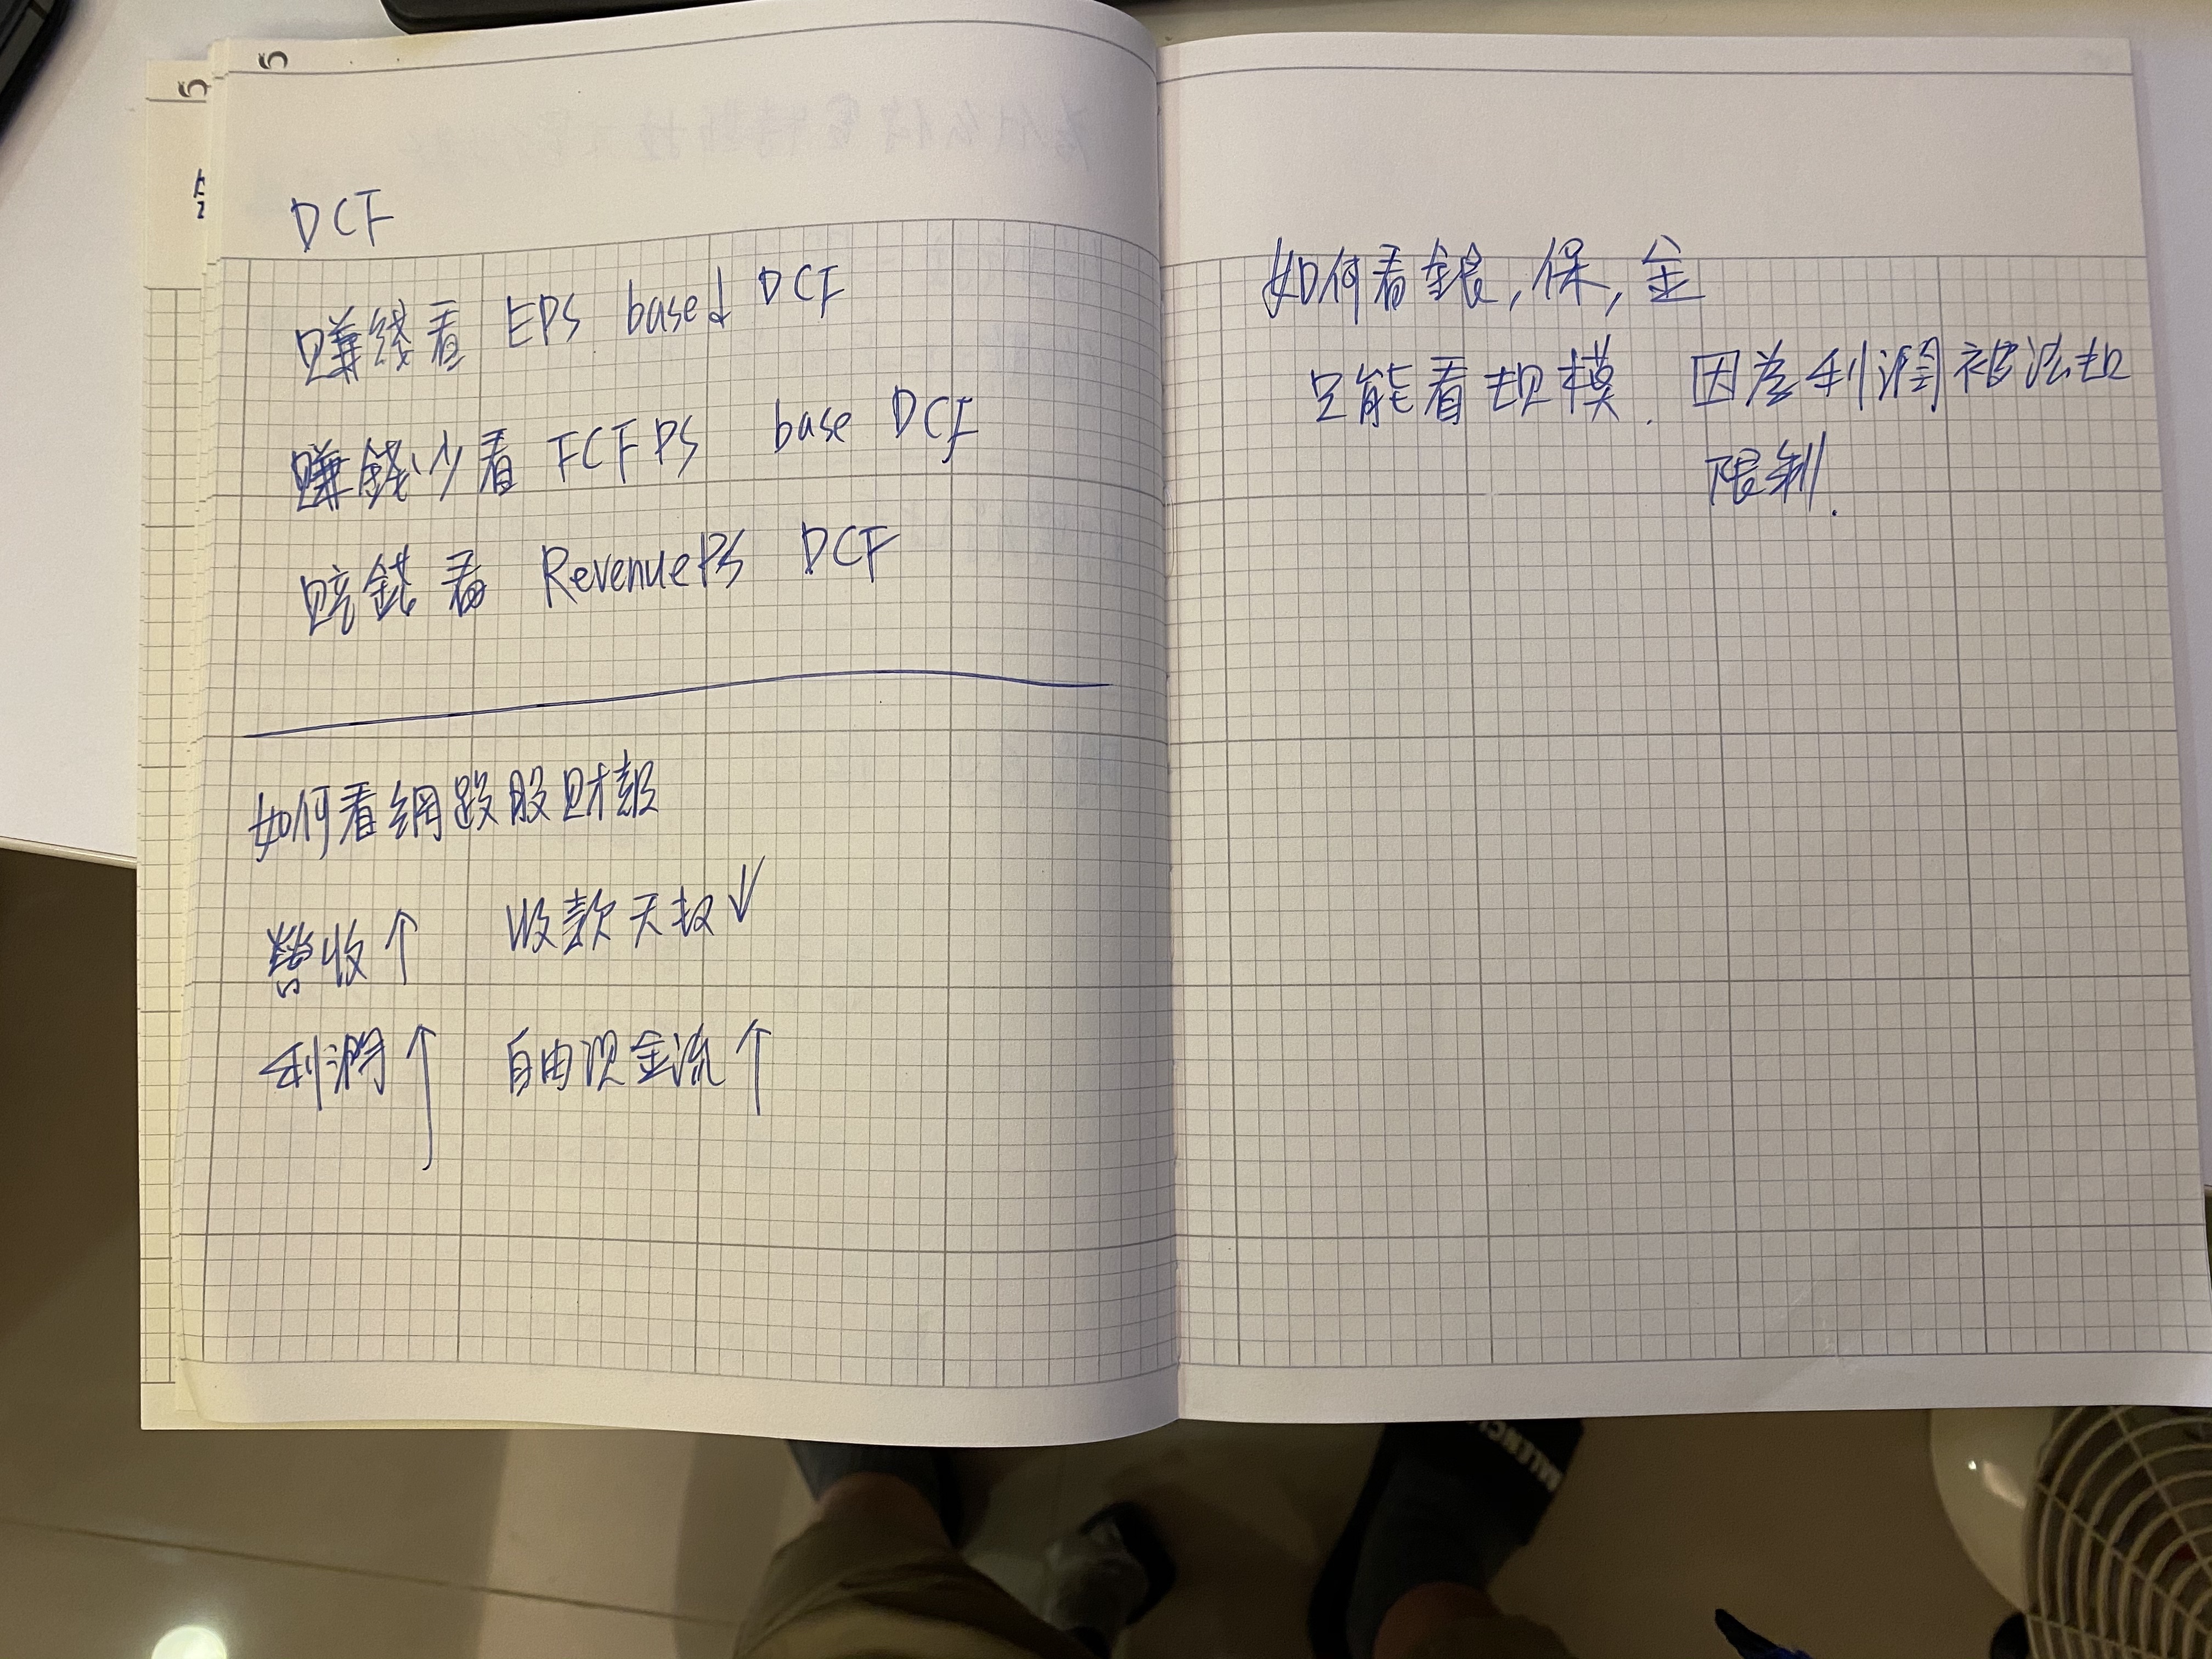 5
5
DCF
賺錢看 EPS based DCF
賺錢少看 FCFPS base DCF
賠錢看 RevenuePS DCF
如何看網路股財報
營收↑ 收款天数↓
利潤↑ 自由现金流↑
如何看銀,保,金
只能看规模. 因为利潤被法规
限制.
BALENCI